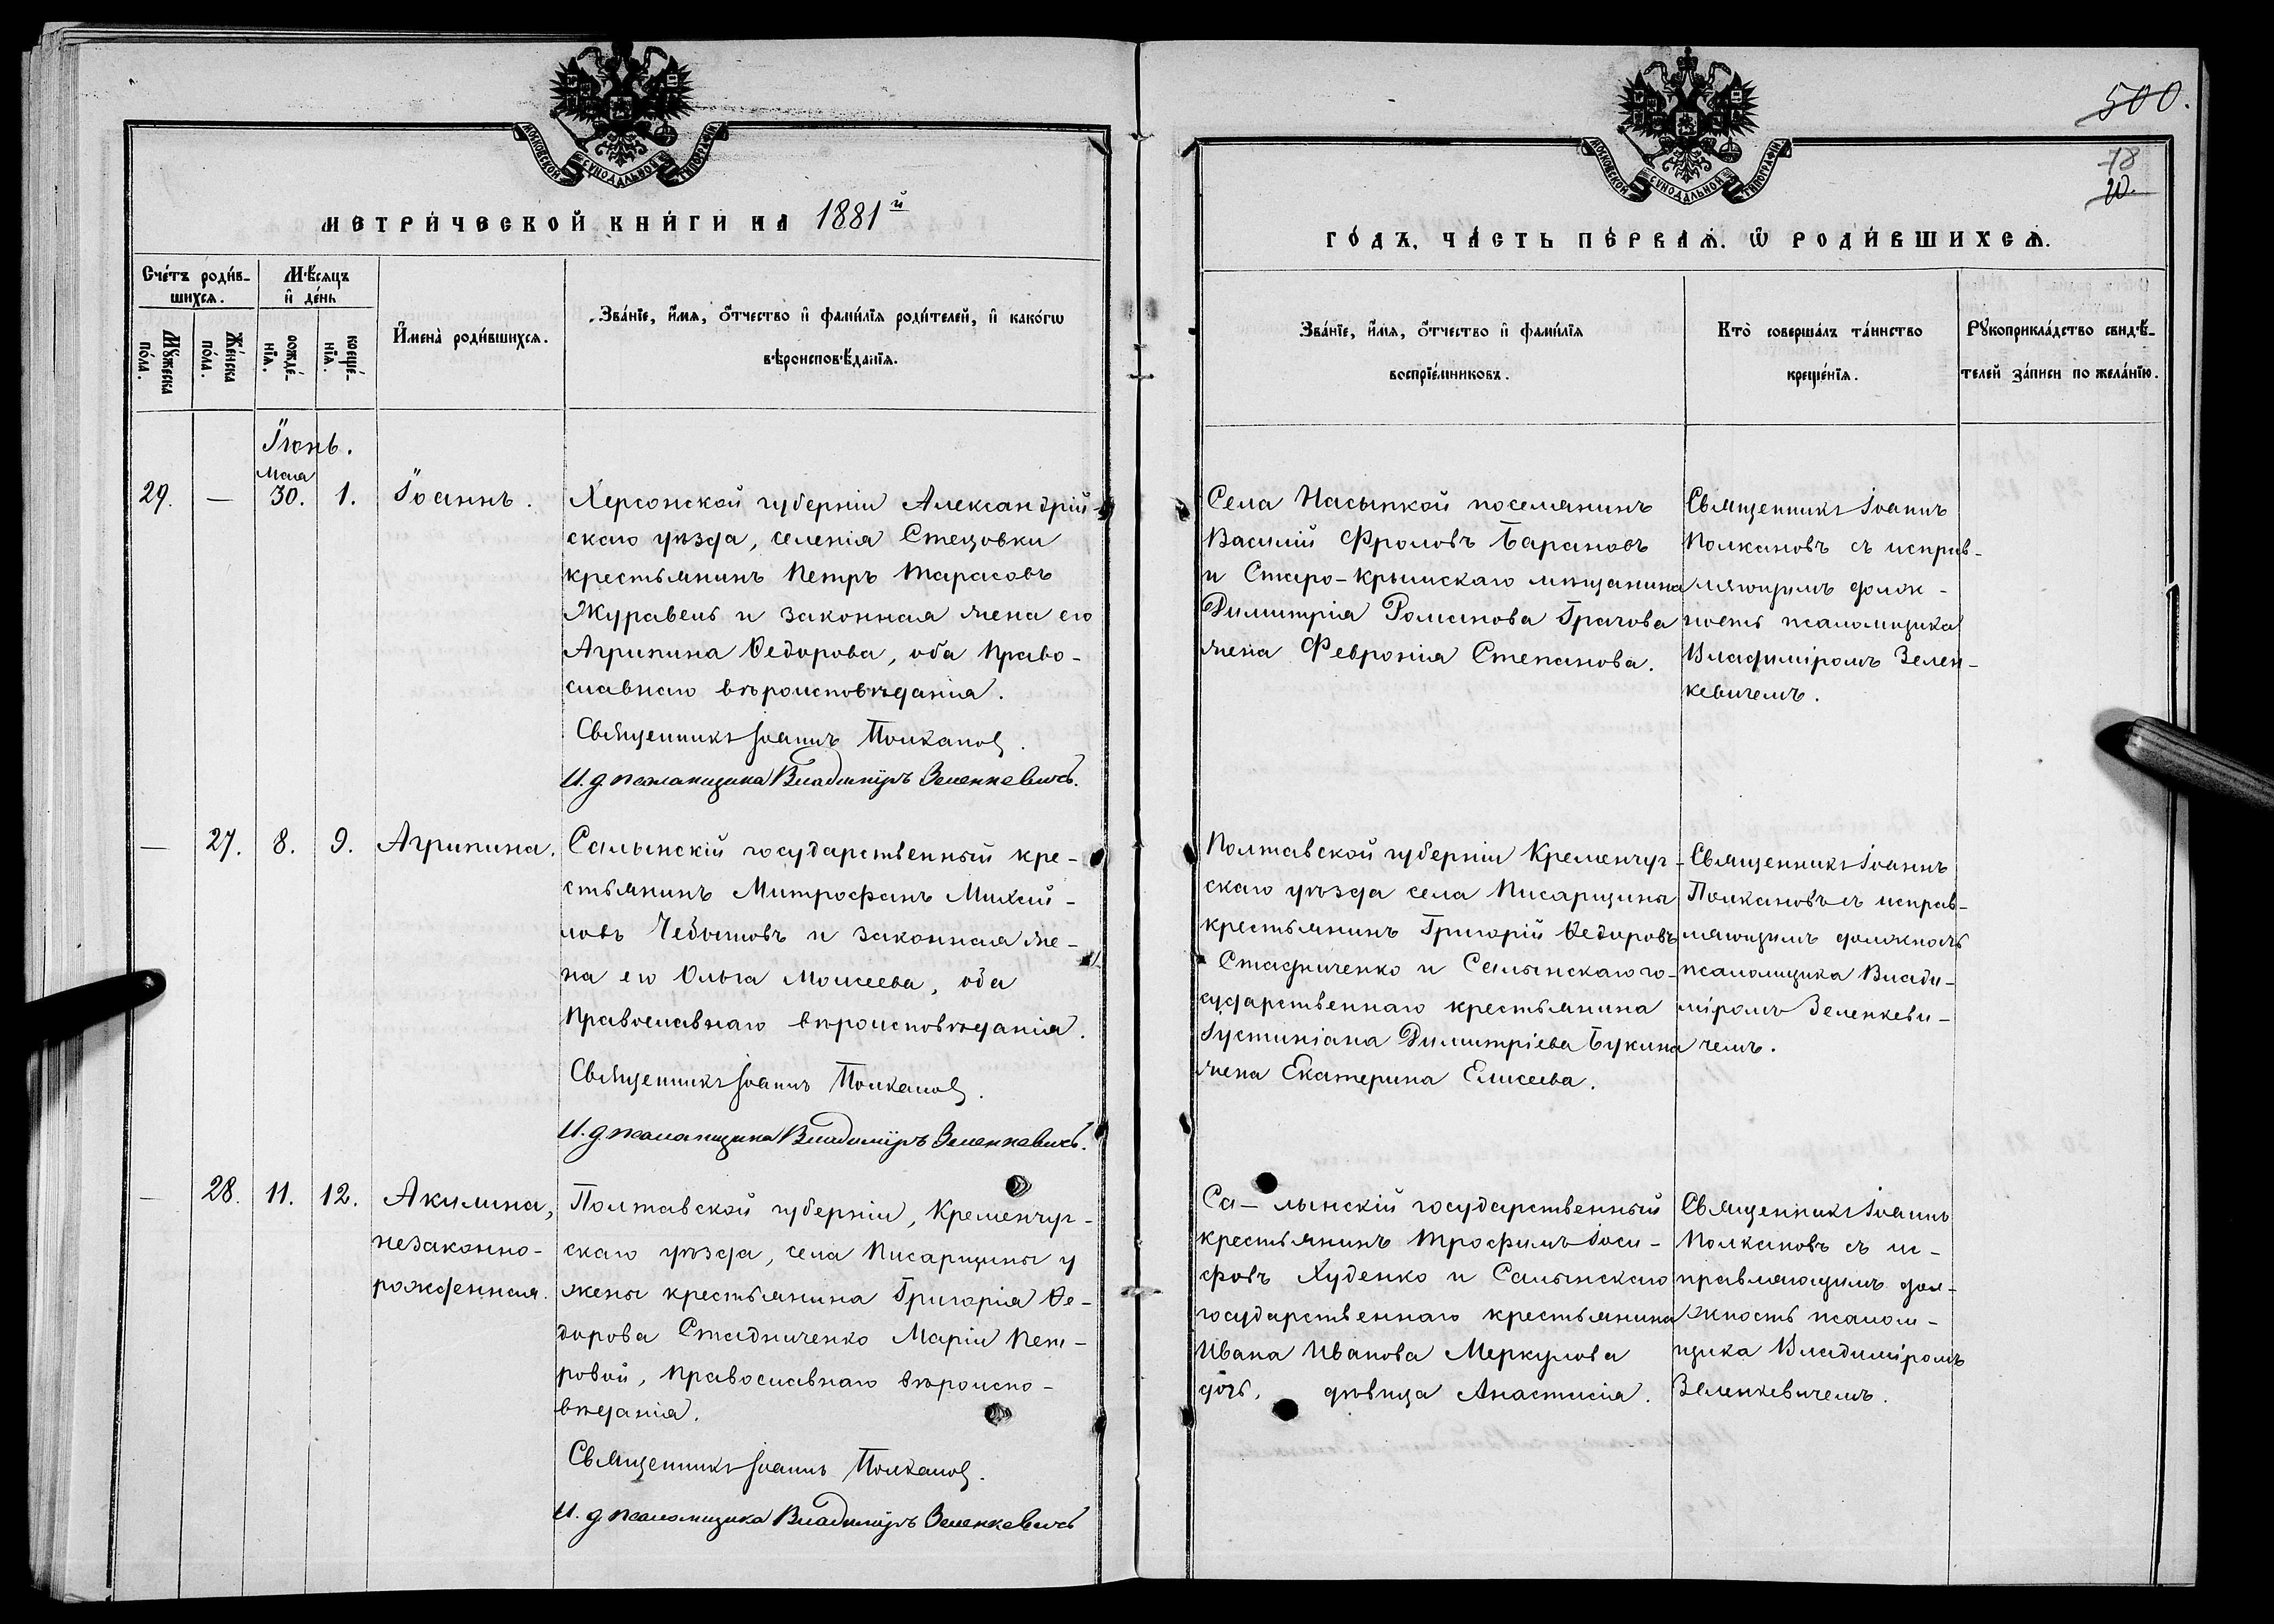 МОСКОВСКОЙ СѴНОДАЛЬНОЙ ТИПОГРАФІИ
МЕТРИ́ЧЕСКОЙ КНИ́ГИ НА 1881й
Сче́тъ роди́в-
шихсѧ.
Мѣ́сѧцъ
и҆ де́нь
Мꙋ́жеска
по́ла.
Же́нска
по́ла.
рожде́-
нїѧ.
креще́-
нїѧ.
И҆мена̀ роди́вшихсѧ.
Зва́нїе, и҆́мѧ, ѻ҆́тчество и҆ фамі́лїѧ роди́телей, и҆ како́гѡ
вѣроисповѣ́данїѧ.
Іюнь.
Мая
29. — 30. 1. Іоаннъ.
Херсонской губерніи Александрій-
скаго уѣзда, селенія Стецовки
крестьянинъ Петръ Тарасовъ
Журавель и законная жена его
Агрипина Ѳедорова, оба Право-
славнаго вѣроисповѣданія.
Священникъ Іоаннъ Полкановъ.
И. д. псаломщика Владиміръ Зеленкевичъ.
— 27. 8. 9. Агрипина.
Салынскій государственный кре-
стьянинъ Митрофанъ Михай-
ловъ Чеботовъ и законная же-
на его Ольга Моисеева, оба
Православнаго вѣроисповѣданія.
Священникъ Іоаннъ Полкановъ.
И. д. псаломщика Владиміръ Зеленкевичъ.
— 28. 11. 12. Акилина,
незаконно-
рожденная.
Полтавской губерніи, Кременчуг-
скаго уѣзда, села Писарщины у
жены крестьянина Григорія Ѳе-
дорова Стадниченко Маріи Пет-
ровой, Православнаго вѣроиспо-
вѣданія.
Священникъ Іоаннъ Полкановъ.
И. д. псаломщика Владиміръ Зеленкевичъ
500.
78
20.
МОСКОВСКОЙ СѴНОДАЛЬНОЙ ТИПОГРАФІИ
ГО́ДЪ, ЧА́СТЬ ПЕ́РВАѦ, Ѡ҆ РОДИ́ВШИХСѦ.
Зва́нїе, и҆́мѧ, ѻ҆́тчество и҆ фамі́лїѧ
воспрїе́мниковъ.
Кто̀ соверша́лъ та́инство
креще́нїѧ.
Рꙋкоприкла́дство свидѣ́-
телей за́писи по жела́нїю.
Села Насыпкой поселянинъ
Василій Фроловъ Барановъ
и Старо-Крымскаго мѣщанина
Димитрія Романова Грачова
жена Февронія Степанова.
Священникъ Іоаннъ
Полкановъ съ исправ-
ляющимъ долж-
ность псаломщика
Владиміромъ Зелен-
кевичемъ.
Полтавской губерніи Кременчуг-
скаго уѣзда села Писарщины
крестьянинъ Григорій Ѳедоровъ
Стадниченко и Салынскаго го-
сударственнаго крестьянина
Іустиніана Димитріева Букина
жена Екатерина Елисеева.
Священникъ Іоаннъ
Полкановъ съ исправ-
ляющимъ должность
псаломщика Влади-
міромъ Зеленкеви-
чемъ.
Са-лынскій государственный
крестьянинъ Трофимъ Іоси-
фовъ Худенко и Салынскаго
государственнаго крестьянина
Ивана Иванова Меркулова
дочь, дѣвица Анастасія.
Священникъ Іоаннъ
Полкановъ съ ис-
правляющимъ дол-
жность псалом-
щика Владиміромъ
Зеленкевичемъ.